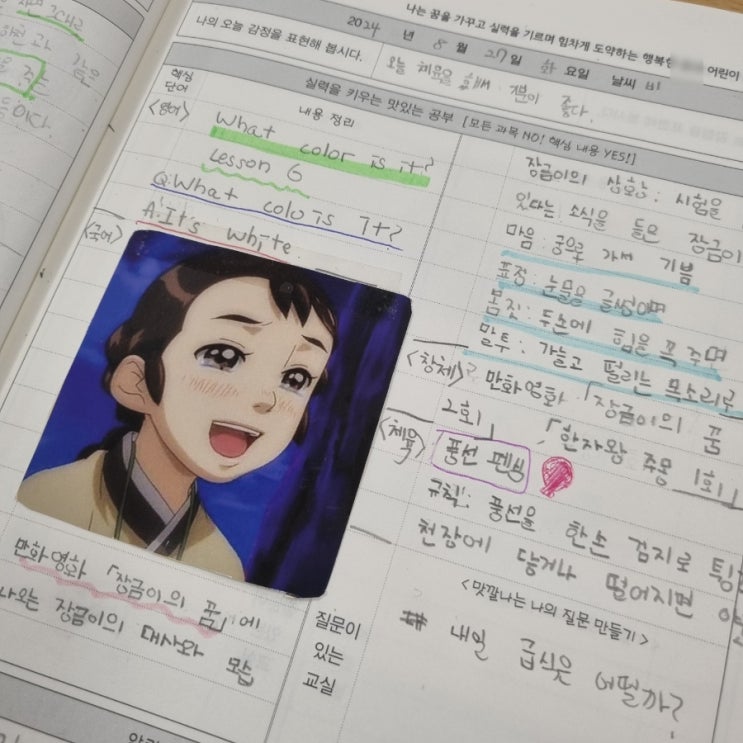 나는 꿈을 가꾸고 실력을 기르며 힘차게 도약하는 행복한
어린이
나의 오늘 감정을 표현해 봅시다.
2024 년 8 월 27일 화요일 날씨 비
오늘 체육을 해서 기분이 좋다.
핵심
단어
실력을 키우는 맛있는 공부 [모든 과목 NO! 핵심 내용 YES!]
내용 정리
<영어>
What color is it?
Lesson 6
Q:What colo is it?
A:It's white
<국어>
만화 영화 「장금이의 꿈」에
나오는 장금이의 대사와 모습
장금이의 상황: 시험을
있다는 소식을 들은 장금이
마음: 궁으로 가서 기쁨
표정: 눈물을 글썽이며
몸짓: 두손에 힘을 꼭 주면
말투: 가늘고 떨리는 목소리로
<창체>
만화영화 「장금이의 꿈
2회」 「한자왕 주몽 1회」
<체육>
풍선 펜싱
규칙: 풍선을 한손 검지로 튕
천장에 닿거나 떨어지면
질문이
있는
교실
<맛깔나는 나의 질문 만들기>
# 내일 급식은 어떨까?